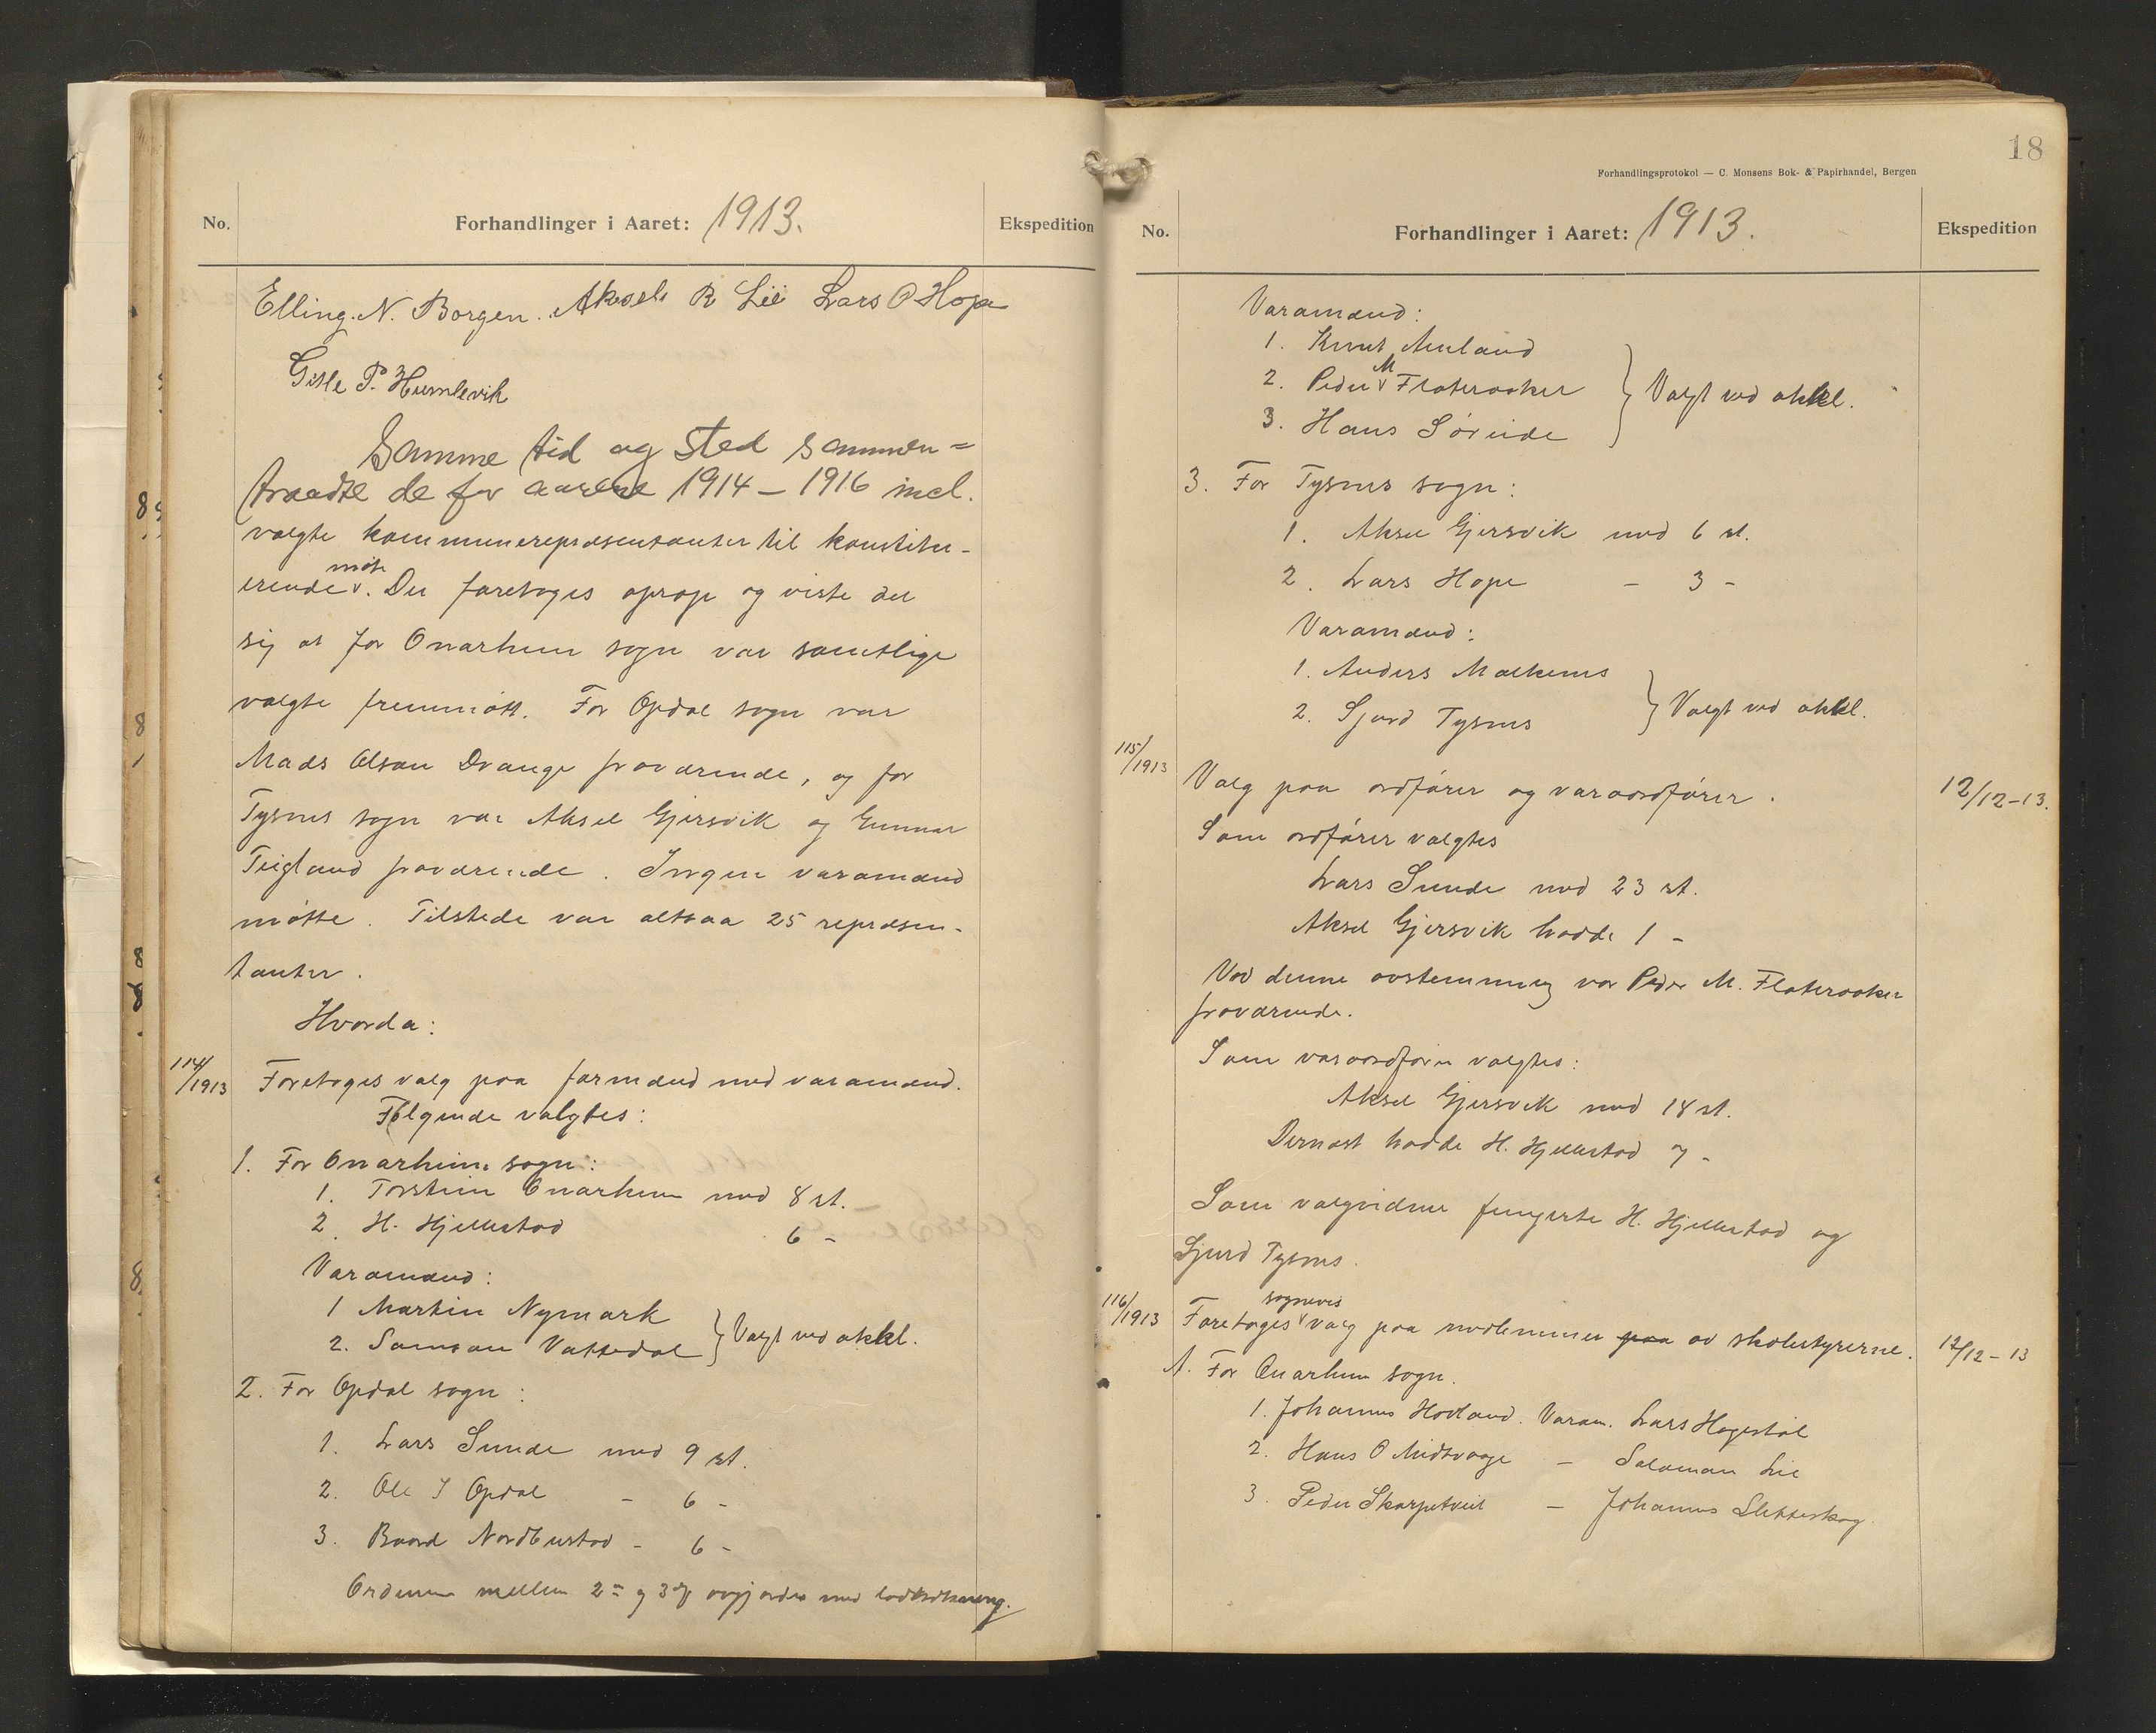 No.
Forhandlinger i Aaret: 1913.
Ekspedition
Elling. N. Borgen. Aksel R Lie Lars O Hope
Gitle P. Humlevik
Samme tid og sted sammen=
traadte de for aarene 1914 – 1916 incl.
valgte kommunerepræsentanter til konstitu-
erende møte. Der foretoges oprop og viste det
sig at for Onarheim sogn var samtlige
valgte fremmøtt. For Opdal sogn var
Mads Olson Drange fraværende, og for
Tysnes sogn var Aksel Gjersvik og Gunnar
Teigland fraværende. Ingen varamænd
møtte. Tilstede var altsaa 25 repræsen-
tanter.
Hvorda:
114/1913 Foretoges valg paa formænd med varamænd.
Følgende valgtes:
1. For Onarheim sogn:
1. Torstein Onarheim med 8 st.
2. H. Hjellestad 6 -
Varamænd:
1 Martin Nymark
2. Samson Vattedal } Valgt ved akkl.
2. For Opdal sogn:
1. Lars Sunde med 9 st.
2. Ole J Opdal - 6 -
3. Baard Nordbustad - 6 -
Ordenen mellem 2 og 3 avgjordes med lodtrækning.
18
Forhandlingsprotokol — C. Monsens Bok- & Papirhandel, Bergen
No.
Forhandlinger i Aaret: 1913.
Ekspedition
Varamænd:
1. Knut Amland
2. Peder M Flateraaker } Valgt ved akkl.
3. Hans Søreide
3. For Tysnes sogn:
1. Aksel Gjersvik med 6 st.
2. Lars Hope - 3 -
Varamænd:
1. Anders Malkenes
2. Sjurd Tysnes } Valgt ved akkl.
115/1913
Valg paa ordfører og varaordfører. 12/12-13.
Som ordfører valgtes
Lars Sunde med 23 st.
Aksel Gjersvik hadde 1 -
Ved denne avstemming var Peder M. Flateraaker
fraværende.
Som varaordfører valgtes:
Aksel Gjersvik med 18 st.
Dernæst hadde H. Hjellestad 7 -
Som valgvidner fungerte H. Hjellestad og
Sjurd Tysnes.
116/1913 Foretoges sognevis valg paa medlemmer paa av skolestyrerne. 12/12-13
1. For Onarheim sogn.
1. Johannes Hovland. Varam. Lars Hagestøl
2. Hans O Midtvaage - Salamon Lie
3. Peder Skarpetveit - Johannes Sletteskog.